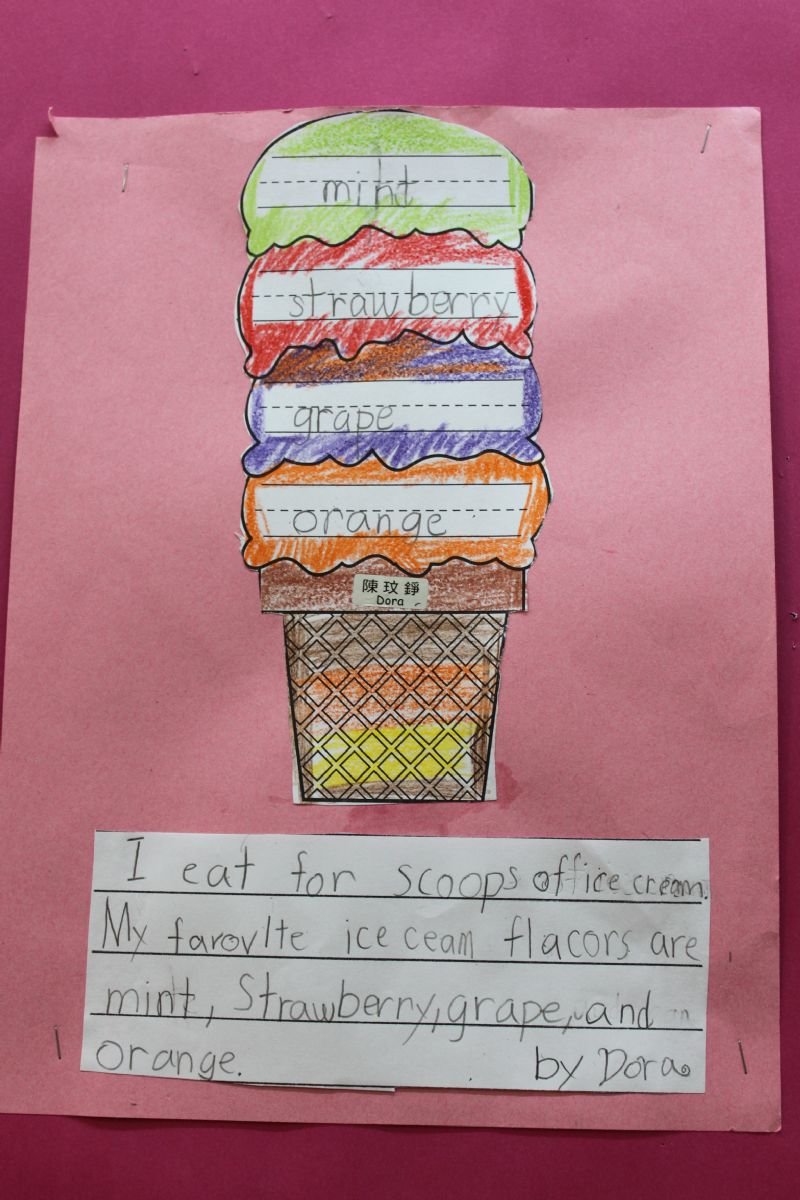 mint
strawberry
grape
orange
陳玟錚
Dora
I eat for scoops office cream.
My farovlte ice ceam flacors are
mint, Strawberry, grape, and
orange. by Dora